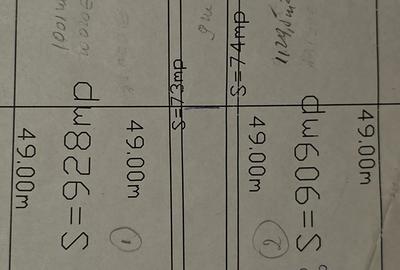 49.00m
1001m
S=928mp
49.00m
1
S=73mp
S=74mp
49.00m
2
S=909mp
49.00m